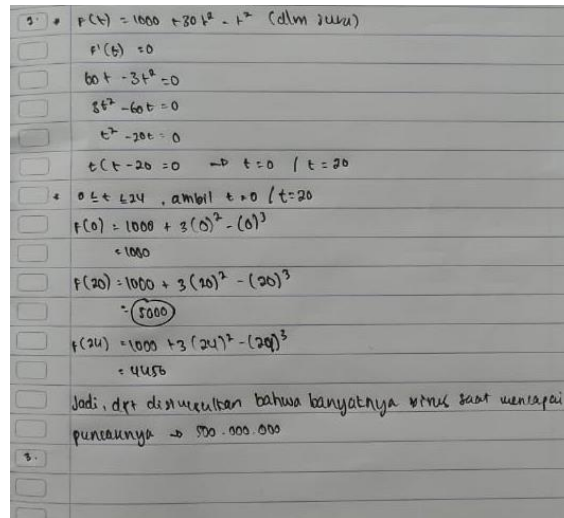 2. • F(t) = 1000 + 30t² - t² (dlm juta)
F'(t) = 0
60t - 3t² = 0
3t² - 60t = 0
t² - 20t = 0
t(t - 20 = 0 → t = 0 / t = 20
• 0 ≤ t ≤ 24, ambil t = 0 / t = 20
F(0) = 1000 + 3(0)² - (0)³
= 1000
F(20) = 1000 + 3(20)² - (20)³
= 5000
F(24) = 1000 + 3(24)² - (24)³
= 4456
Jadi, dpt disimpulkan bahwa banyaknya virus saat mencapai
puncaknya → 500.000.000
3.